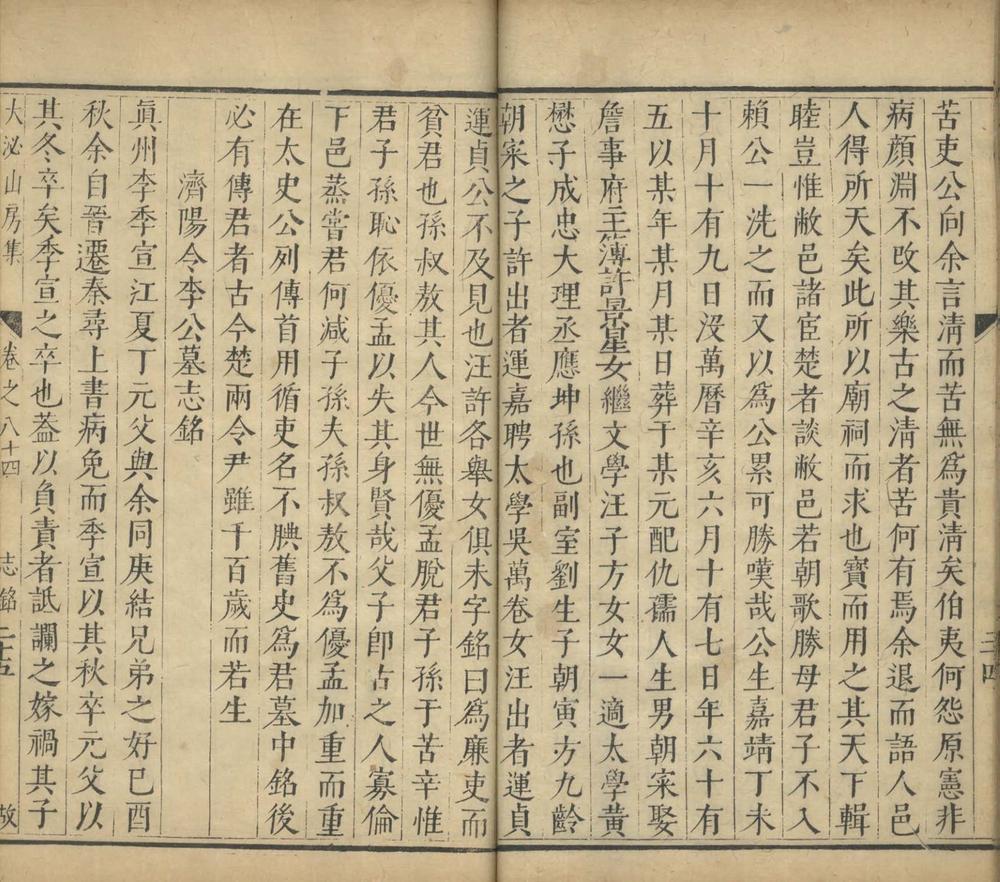 苦吏公向余言淸而苦無爲貴淸矣伯夷何怨原憲非
病顔淵不改其樂古之淸者苦何有焉余退而語人邑
人得所天矣此所以廟祠而求也寶而用之其天下輯
睦豈惟敝邑諸宦楚者談敝邑若朝歌勝母君子不入
賴公一洗之而又以爲公累可勝嘆哉公生嘉靖丁未
十月十有九日沒萬曆辛亥六月十有七日年六十有
五以某年某月某日葬于某元配仇孺人生男朝寀娶
詹事府主簿許景星女繼文學汪子方女女一適太學黃
懋子成忠大理丞應坤孫也副室劉生子朝寅方九齡
朝寀之子許出者運嘉聘太學吳萬卷女汪出者運貞
運貞公不及見也汪許各舉女俱未字銘曰爲廉吏而
貧君也孫叔敖其人今世無優孟脫君子孫于苦辛惟
君子孫恥依優孟以失其身賢哉父子卽古之人寡倫
下邑蒸嘗君何减子孫夫孫叔敖不爲優孟加重而重
在太史公列傳首用循吏名不腆舊史爲君墓中銘後
必有傳君者古今楚兩令尹雖千百歲而若生
濟陽令李公墓志銘
眞州李季宣江夏丁元父與余同庚結兄弟之好巳酉
秋余自晉遷秦尋上書病免而季宣以其秋卒元父以
其冬卒矣季宣之卒也蓋以負責者詆讕之嫁禍其子
大泌山房集 卷之八十四 志銘 二十五